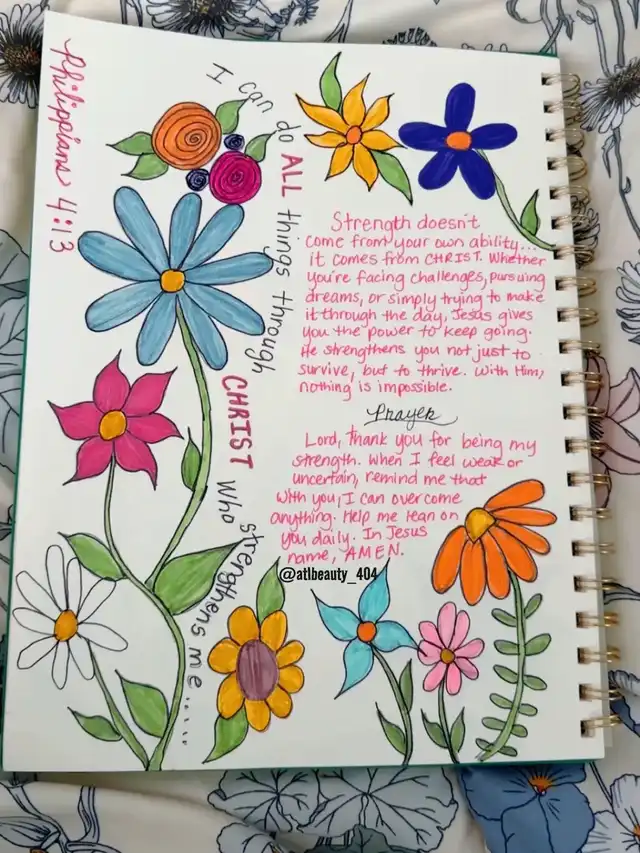 Philippians 4:13
I can do ALL things through CHRIST who strengthens me.....
Strength doesn't
come from your own ability...
it comes from CHRIST. Whether
you're facing challenges, pursuing
dreams, or simply trying to make
it through the day, Jesus gives
you the power to keep going.
He strengthens you not just to
survive, but to thrive. With Him,
nothing is impossible.
Prayer
Lord, thank you for being my
strength. When I feel weak or
uncertain, remind me that
with you, I can overcome
anything. Help me lean on
you daily. In Jesus
name, AMEN.
@atlbeauty_404